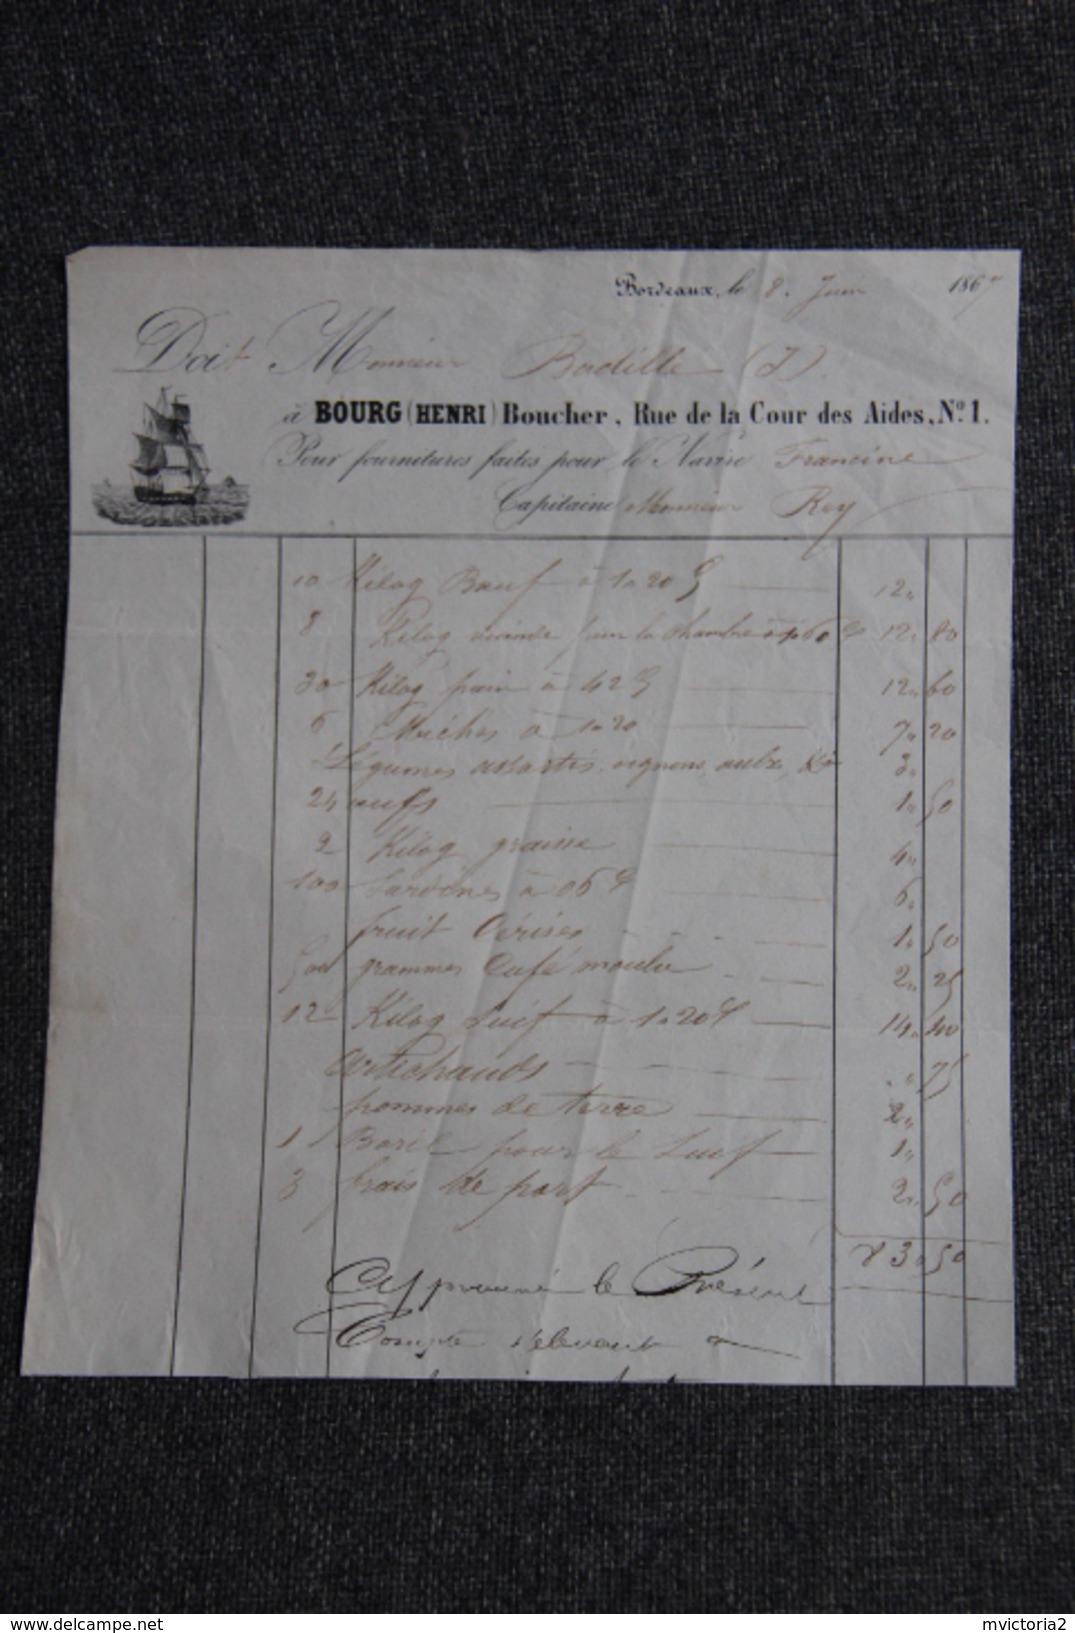 Bordeaux, le 8. Juin 1867
Doit Monsieur Badille (J).
à BOURG (HENRI) Boucher, Rue de la Cour des Aides, N.º 1.
Pour fournitures faites pour le Navire Francine
Capitaine Monsieur Rey
10 Kilog Bœuf à 1"20 12"
8 Kilog viande pour la chambre à 1"60 12"80
30 Kilog pain à 42 12"60
6 Miches à 1"20 7"20
Légumes assortis oignons, aulx, &a 3"
24 œufs 1"50
2 Kilog graisse 4"
100 Sardines à 06 6"
fruit Cérises 1"50
500 grammes Café moulu 2"25
12 Kilog Suif à 1"20 14"40
Artichauds "75
pommes de terre 2"
1 Baril pour le Suif 1"
3 frais de port 2"50
83"50
Approuvé le Présent
Compte s'élevant a
delcampe.net
mvictoria2